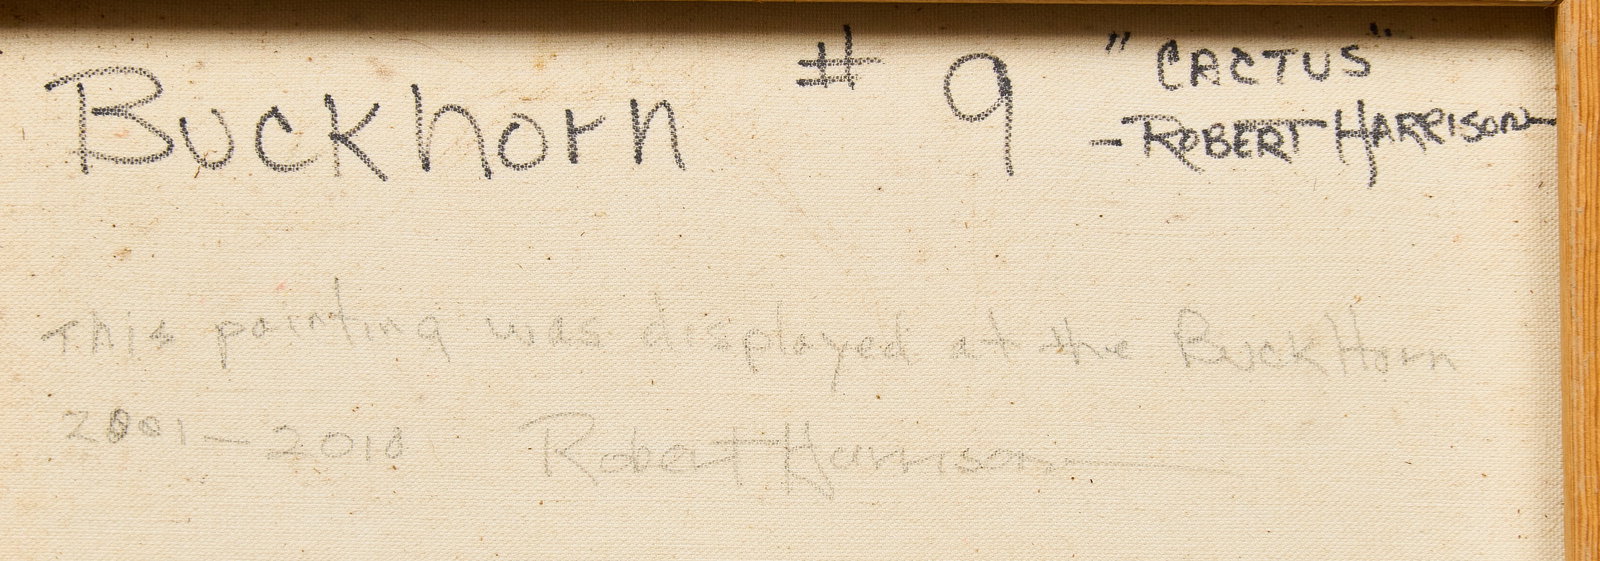 Buckhorn # 9 "CACTUS"
-ROBERT HARRISON
This painting was displayed at the BuckHorn
2001-2010 Robert Harrison